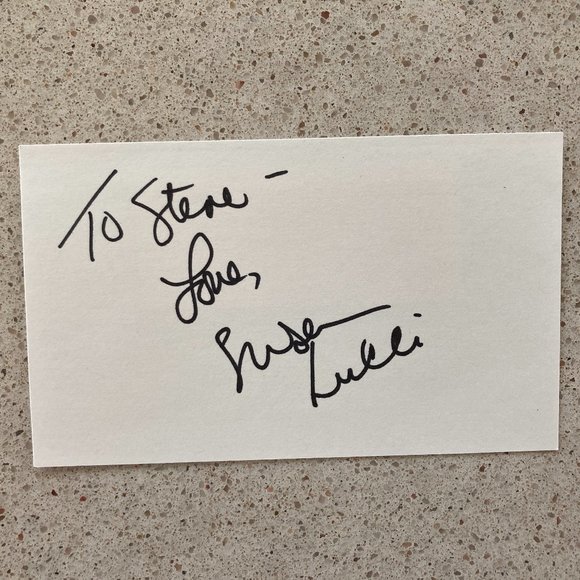 To Steve -
Love,
Susan
Lucci